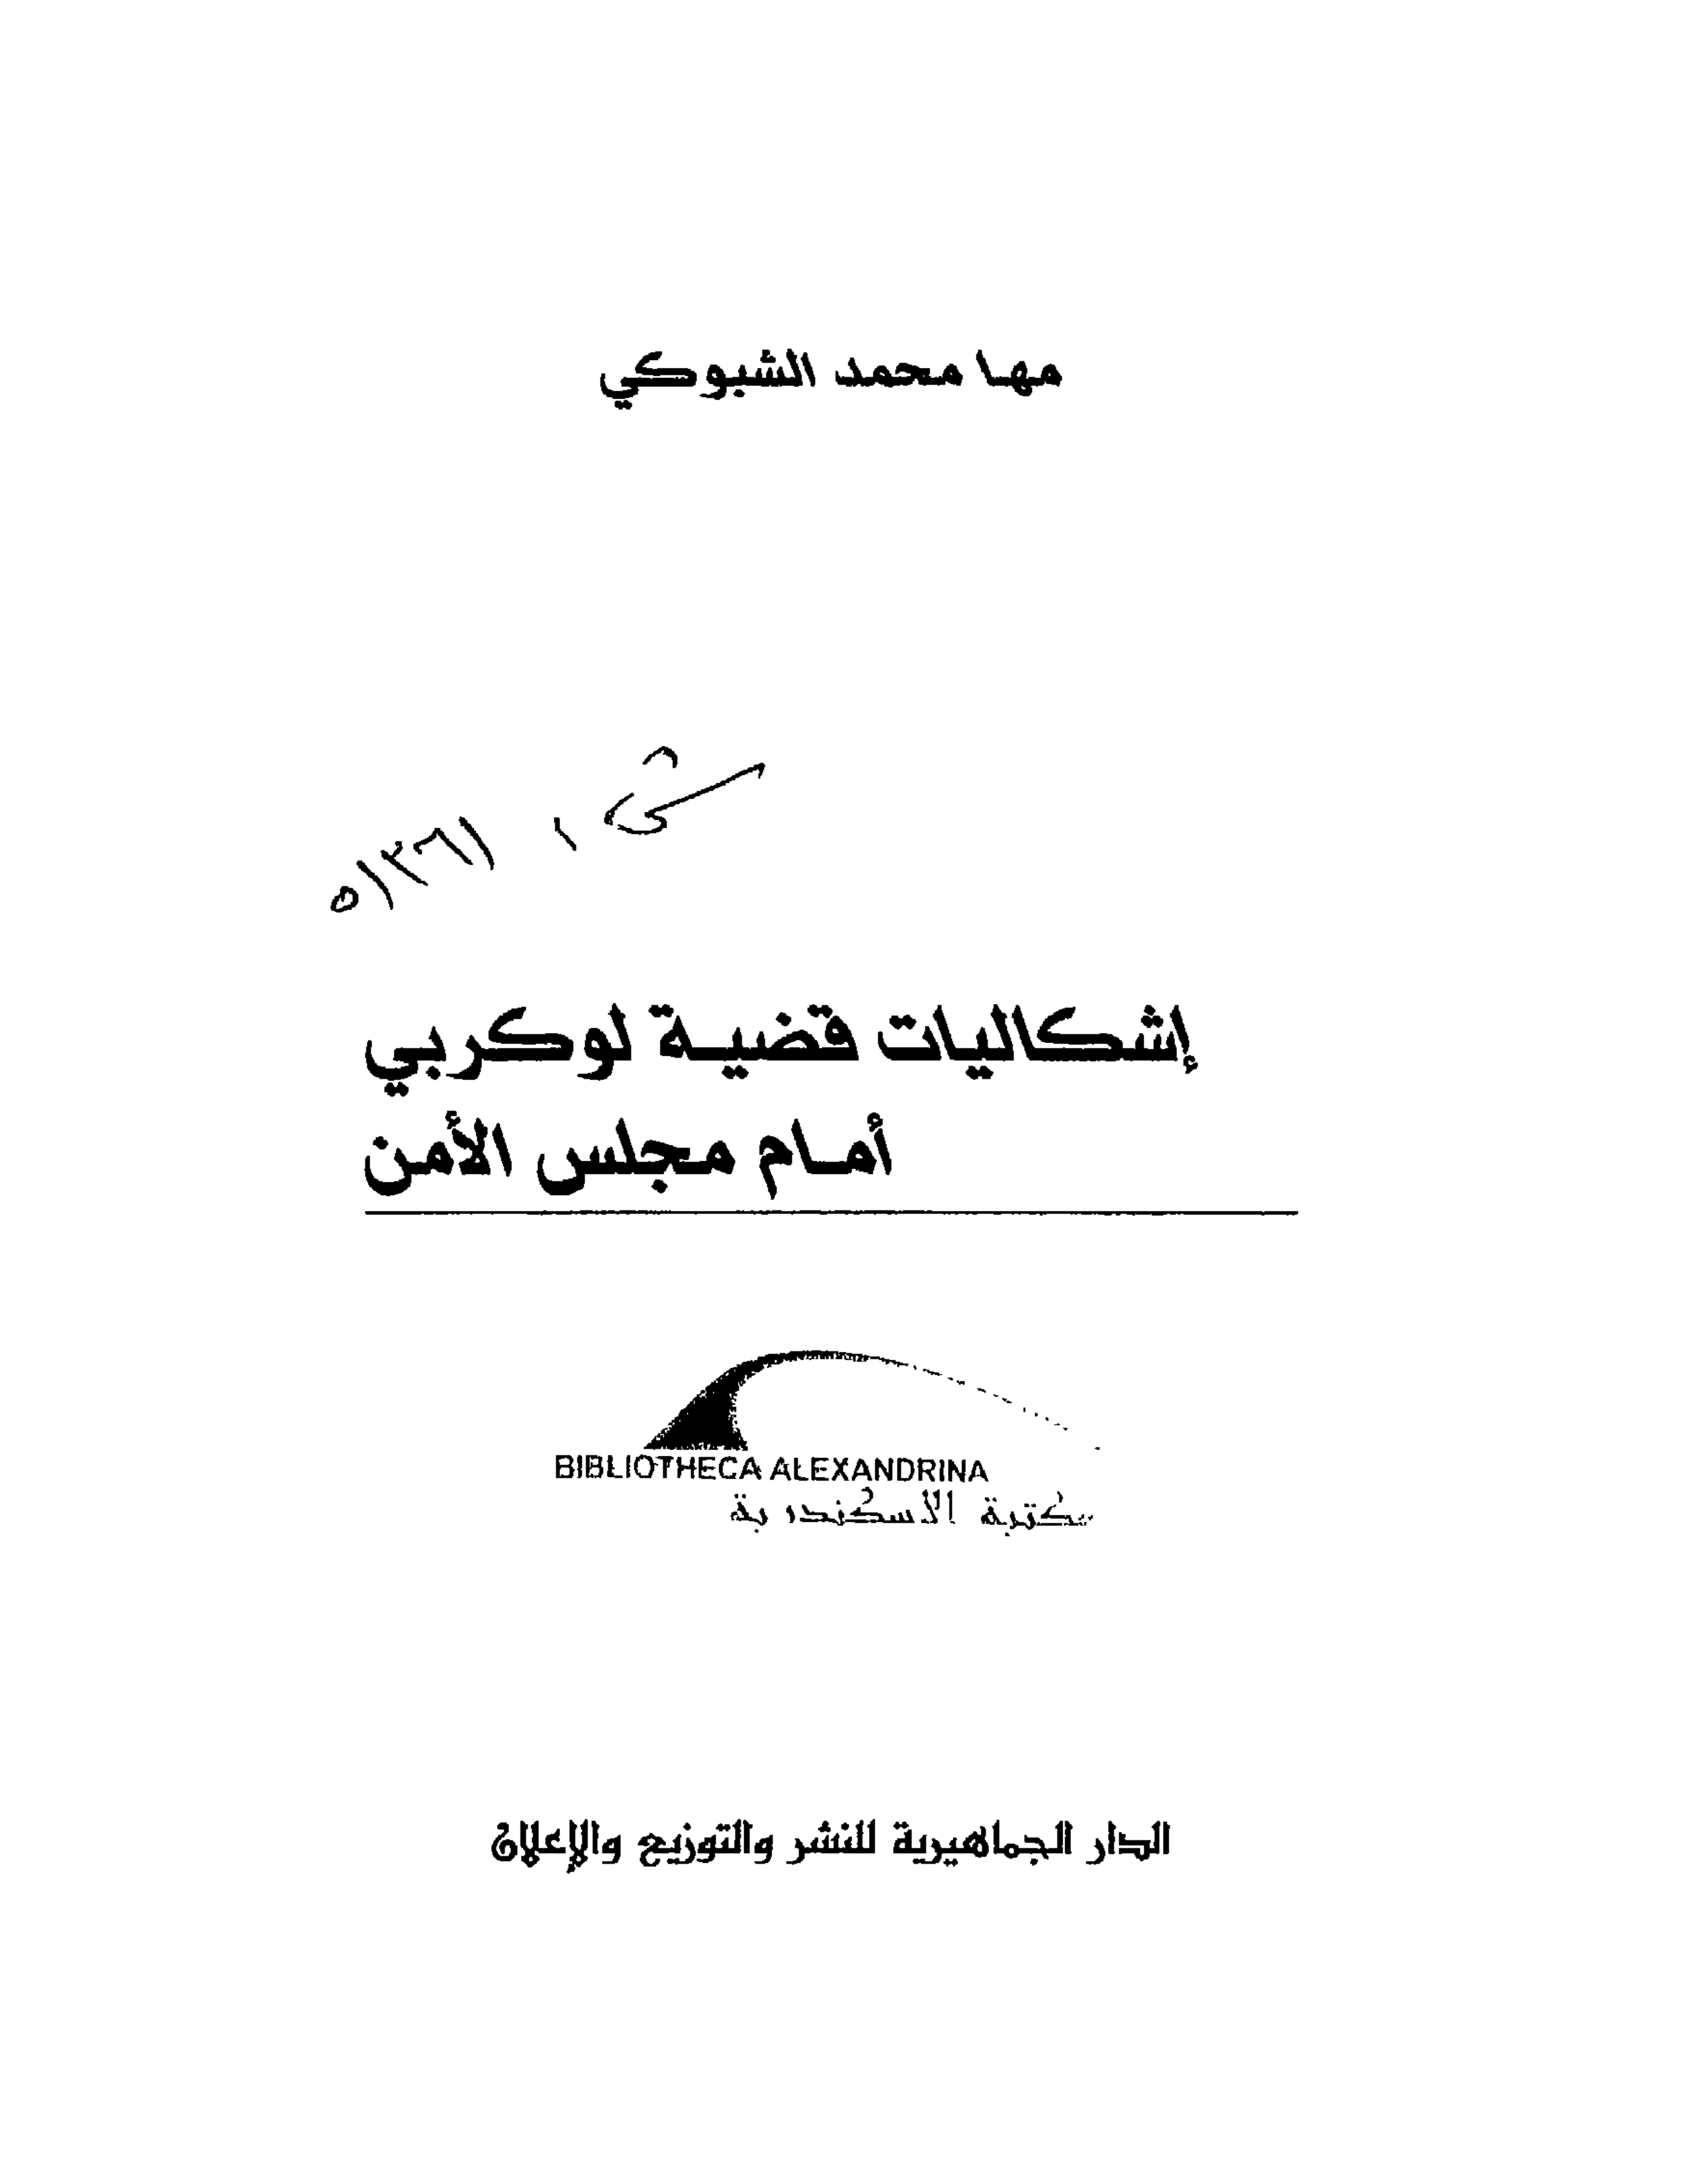 مها محمد الشبوكي
إشكاليات قضية لوكربي
أمام مجلس الأمن
BIBLIOTHECA ALEXANDRINA
مكتبة الاسكندرية
الدار الجماهيرية للنشر والتوزيع والإعلان